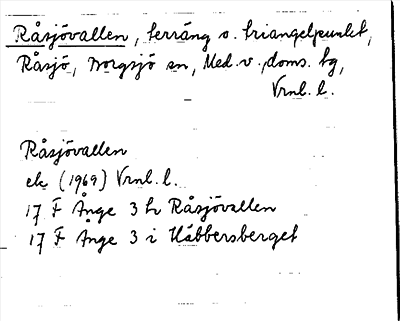 Råsjövallen, terräng o. triangelpunkt,
Råsjö, Borgsjö sn, Med. v. doms. tg,
Vrnl. l.
Råsjövallen
ek (1969) Vrnl. l.
17 F Ånge 3 h Råsjövallen
17 F Ånge 3 i Häbbersberget